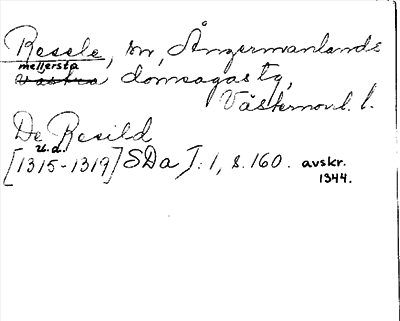 Resele, sn, Ångermanlands
mellersta
västra domsagas tg,
Västernorrl. l.
De Resild
u.d.
[1315-1319] SDa I:1, s.160. avskr.
1344.